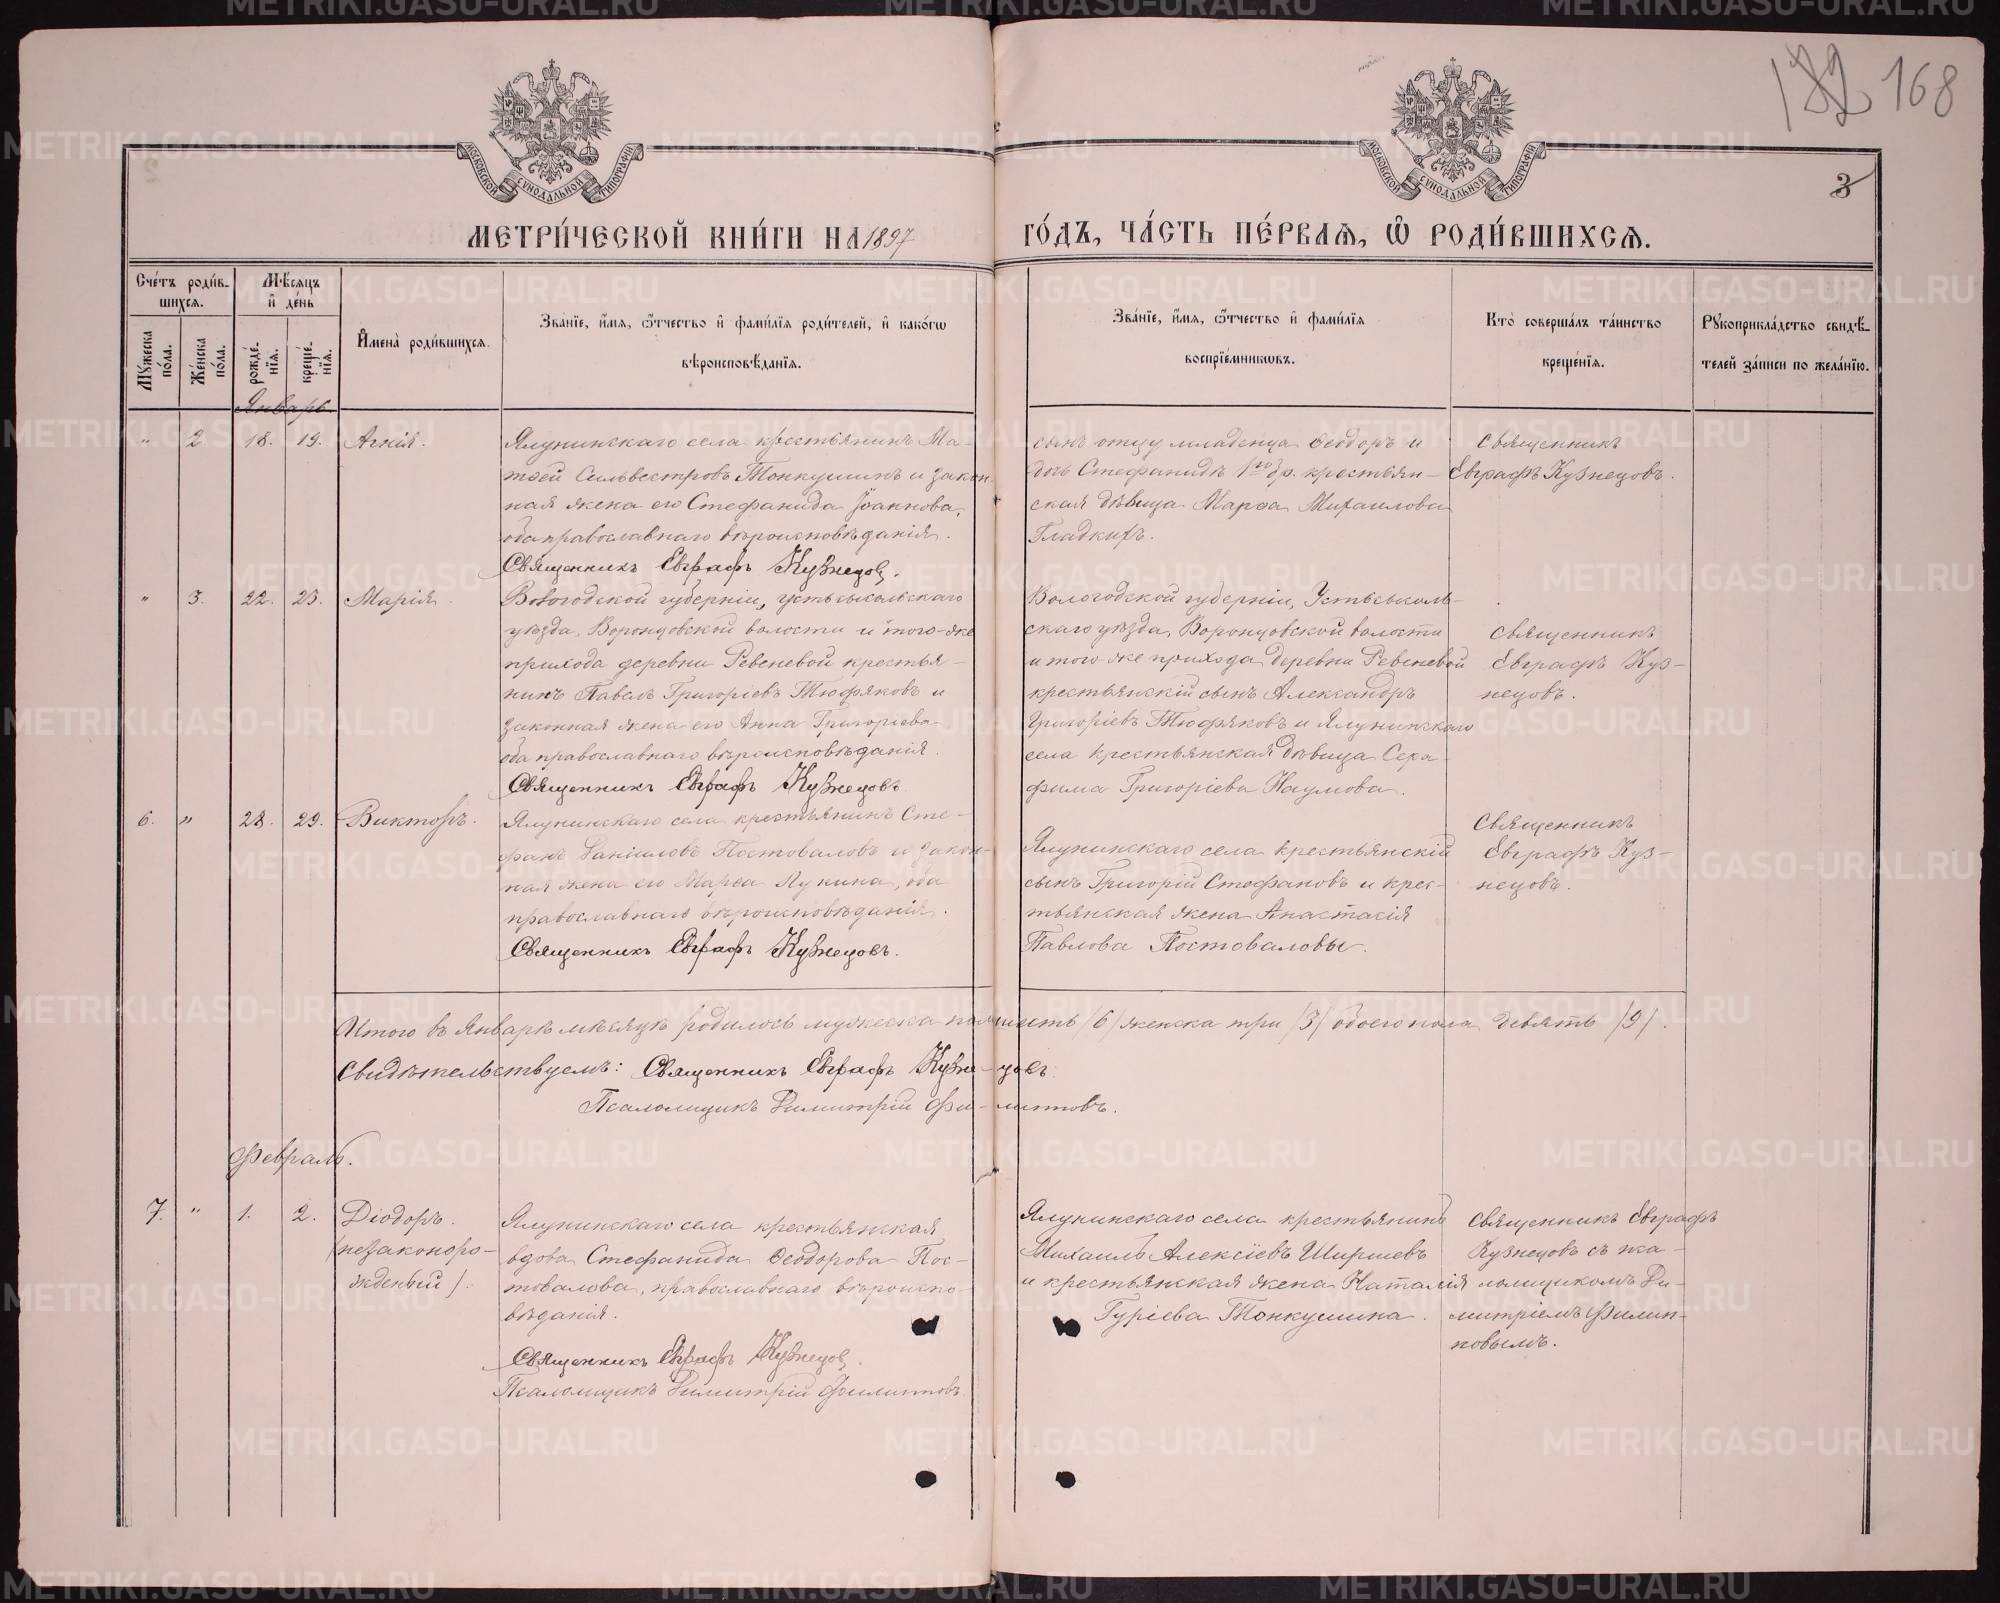 182 168
3
МОСКОВСКОЙ СѴНОДАЛЬНОЙ ТИПОГРАФІИ
МОСКОВСКОЙ СѴНОДАЛЬНОЙ ТИПОГРАФІИ
МЕТРИ́ЧЕСКОЙ КНИ́ГИ НА 1897 ГО́ДЪ, ЧА́СТЬ ПЕ́РВАѦ, Ѡ РОДИ́ВШИХСѦ.
Сче́тъ роди́в-
шихсѧ.
Мꙋ́жеска по́ла.
Же́нска по́ла.
Мѣ́сѧцъ и҆ де́нь
рожде́-
нїѧ.
креще́-
нїѧ.
И҆мена̀ роди́вшихсѧ.
Зва́нїе, и҆́мѧ, ѻ҆́тчество и҆ фами́лїѧ роди́телей, и҆ како́гѡ
вѣроисповѣ́данїѧ.
Зва́нїе, и҆́мѧ, ѻ҆́тчество и҆ фами́лїѧ
воспрїе́мникѡвъ.
Кто̀ соверша́лъ та́инство
креще́нїѧ.
Рꙋкоприкла́дство свидѣ́-
телей за́писи по жела́нїю.
Январь.
" 2. 18. 19. Агнія.
Ялунинскаго села крестьянинъ Ма-
тѳей Сильвестровъ Тонкушинъ и закон
ная жена его Стефанида Іоаннова,
оба православнаго вѣроисповѣданія.
Священникъ Евграфъ Кузнецов.
сынъ отцу младенца Ѳеодоръ и
дочь Стефанидъ 1го бр. крестьян-
ская дѣвица Марѳа Михаилова
Гладкихъ.
Священникъ
Евграфъ Кузнецовъ.
" 3. 22. 23. Марія.
Вологодской губерніи, устьсысольскаго
уѣзда, Воронцовской волости и того-же
прихода деревни Ревеневой крестья-
нинъ Павелъ Григоріевъ Тюфяковъ и
законная жена его Анна Григоріева
оба православнаго вѣроисповѣданія.
Священникъ Евграфъ Кузнецовъ
Вологодской губерніи, Устьсысоль-
скаго уѣзда, Воронцовской волости
и того же прихода деревни Ревеневой
крестьянскій сынъ Александръ
Григоріевъ Тюфяковъ и Ялунинскаго
села крестьянская дѣвица Сера-
фима Григоріева Наумова.
Священникъ
Евграфъ Куз-
нецовъ.
6. " 28. 29. Викторъ.
Ялунинскаго села крестьянинъ Сте-
фанъ Даніиловъ Постоваловъ и закон-
ная жена его Марѳа Лукина, оба
православнаго вѣроисповѣданія.
Священникъ Евграфъ Кузнецовъ.
Ялунинскаго села крестьянскій
сынъ Григорій Стефановъ и крес-
тьянская жена Анастасія
Павлова Постоваловы.
Священникъ
Евграфъ Куз-
нецовъ.
Итого въ Январѣ мѣсяцѣ родилось мужеска пола шесть /6/ женска три /3/ обоего пола девять /9/.
Свидѣтельствуемъ: Священникъ Евграфъ Кузне-цовъ
Псаломщикъ Димитрій Фи-липповъ.
Февраль.
7. " 1. 2. Діодоръ.
(незаконоро-
жденый).
Ялунинскаго села крестьянская
вдова Стефанида Ѳеодорова Пос-
товалова, православнаго вѣроиспо-
вѣданія.
Священникъ Евграфъ Кузнецов.
Псаломщикъ Димитрій Филипповъ
Ялунинскаго села крестьянинъ
Михаилъ Алексіевъ Ширшевъ
и крестьянская жена Наталія
Гуріева Тонкушина.
Священникъ Евграфъ
Кузнецовъ съ пса-
ломщикомъ Ди-
митріемъ Филип-
повымъ.
METRIKI.GASO-URAL.RU